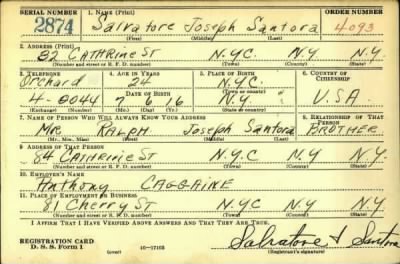 SERIAL NUMBER 1. NAME (Print) ORDER NUMBER
2874 Salvatore Joseph Santora 4093
(First) (Middle) (Last)
2. ADDRESS (Print)
82 CATHRINE ST N.Y.C. N.Y. N.Y
(Number and street or R. F. D. number) (Town) (County) (State)
3. TELEPHONE 4. AGE IN YEARS 5. PLACE OF BIRTH 6. COUNTRY OF CITIZENSHIP
Orchard 24 N.Y.C.
DATE OF BIRTH (Town or county)
4-0044 7 6 16 N.Y. USA
(Exchange) (Number) (Mo.) (Day) (Yr.) (State or country)
7. NAME OF PERSON WHO WILL ALWAYS KNOW YOUR ADDRESS 8. RELATIONSHIP OF THAT PERSON
Mr RALPH Joseph Santora BROTHER
(Mr., Mrs., Miss) (First) (Middle) (Last)
9. ADDRESS OF THAT PERSON
84 CATHERINE ST N.Y.C N.Y N.Y
(Number and street or R. F. D. number) (Town) (County) (State)
10. EMPLOYER'S NAME
Anthony CAGGAINE
11. PLACE OF EMPLOYMENT OR BUSINESS
81 Cherry St N.Y.C N.Y N.Y
(Number and street or R. F. D. number) (Town) (County) (State)
I AFFIRM THAT I HAVE VERIFIED ABOVE ANSWERS AND THAT THEY ARE TRUE.
REGISTRATION CARD
D. S. S. Form 1 (over) 16-17105 Salvatore J Santora
(Registrant's signature)